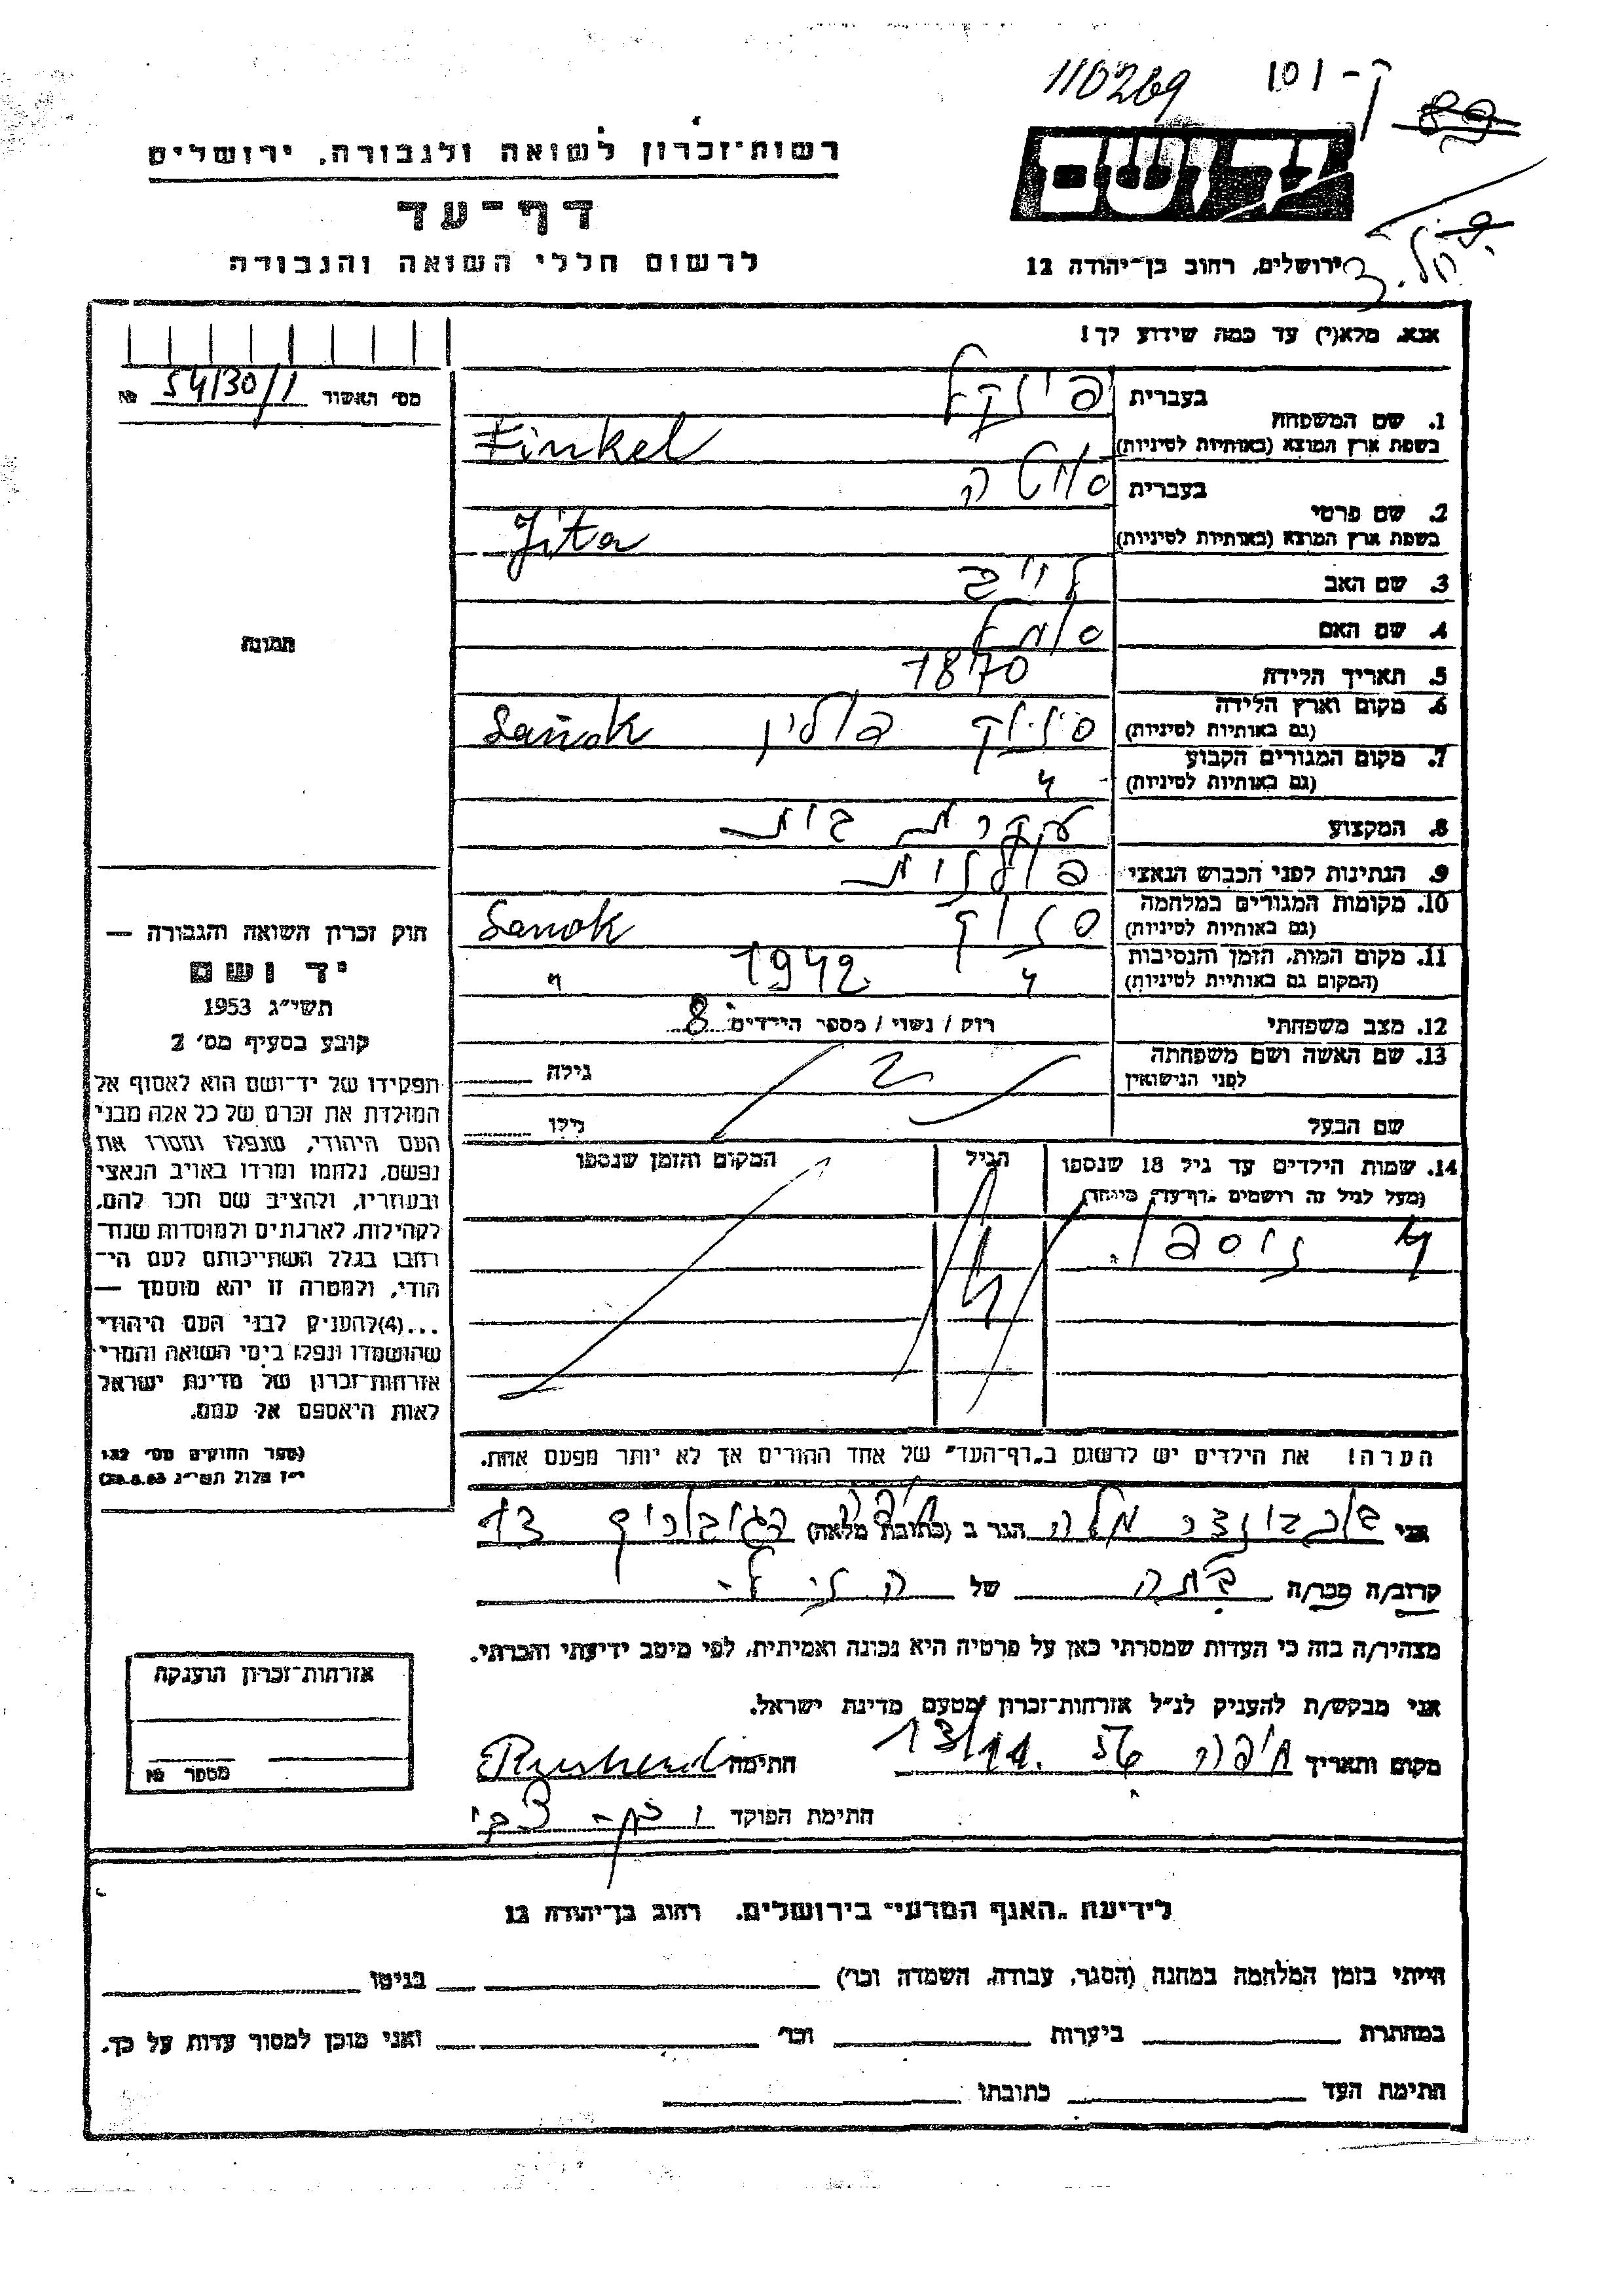 110269 101 - ק
89
יד ושם
רשות־זכרון לשואה ולגבורה, ירושלים
דף־עד
לרשום חללי השואה והגבורה
ירושלים, רחוב בן־יהודה 12
אנא, מלא(י) עד כמה שידוע לך!
מס׳ האשור 54130/1 №
1. שם המשפחה בעברית פינקל
בשפת ארץ המוצא (באותיות לטיניות) Finkel
2. שם פרטי בעברית
בשפת ארץ המוצא (באותיות לטיניות) Jita
3. שם האב לייב
4. שם האם
5. תאריך הלידה 1870
6. מקום וארץ הלידה סנוק פולין Sanok
(גם באותיות לטיניות)
7. מקום המגורים הקבוע
(גם באותיות לטיניות) "
8. המקצוע עקרת בית
9. הנתינות לפני הכבוש הנאצי פולנית
10. מקומות המגורים במלחמה סנוק Sanok
(גם באותיות לטיניות)
11. מקום המות, הזמן והנסיבות " 1942 "
(המקום גם באותיות לטיניות)
12. מצב משפחתי רוק / נשוי / מספר הילדים 8
13. שם האשה ושם משפחתה
לפני הנישואין גילה
שם הבעל גילו
14. שמות הילדים עד גיל 18 שנספו הגיל המקום והזמן שנספו
(מעל לגיל זה רושמים „דף־עד״ מיוחד)
4 נוספו.
4
הערה! את הילדים יש לרשום ב„דף־העד״ של אחד ההורים אך לא יותר מפעם אחת.
תמונה
חוק זכרון השואה והגבורה —
יד ושם
תשי״ג 1953
קובע בסעיף מס׳ 2
תפקידו של יד־ושם הוא לאסוף אל
המולדת את זכרם של כל אלה מבני
העם היהודי, שנפלו ומסרו את
נפשם, נלחמו ומרדו באויב הנאצי
ובעוזריו, ולהציב שם וזכר להם,
לקהילות, לארגונים ולמוסדות שנח־
רבו בגלל השתייכותם לעם הי־
הודי, ולמטרה זו יהא מוסמך —
...(4)להעניק לבני העם היהודי
שהושמדו ונפלו בימי השואה והמרי
אזרחות־זכרון של מדינת ישראל
לאות היאספם אל עמם.
(ספר החוקים מס׳ 132
י״ז אלול תשי״ג 28.8.53)
אני הגר ב (כתובת מלאה) חיפה 13
קרוב/ה מכר/ה בתה של הנ״ל
מצהיר/ה בזה כי העדות שמסרתי כאן על פרטיה היא נכונה ואמיתית, לפי מיטב ידיעתי והכרתי.
אני מבקש/ת להעניק לנ״ל אזרחות־זכרון מטעם מדינת ישראל.
מקום ותאריך חיפה 13/11. 56 חתימה
חתימת הפוקד
אזרחות־זכרון הוענקה
מספר №
לידיעת „האגף המדעי״ בירושלים, רחוב בן־יהודה 12
הייתי בזמן המלחמה במחנה (הסגר, עבודה, השמדה וכו׳) בגיטו
במחתרת ביערות וכו׳ ואני מוכן למסור עדות על כך.
חתימת העד כתובתו